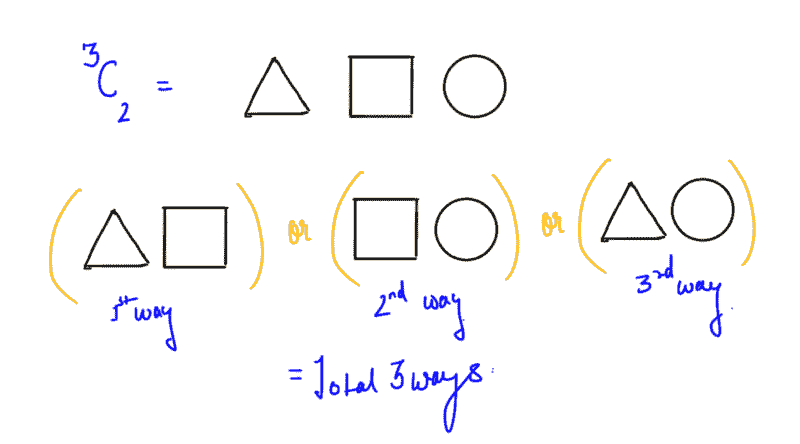 ³C₂ =
or or
1st way 2nd way. 3rd way.
= Total 3 ways.